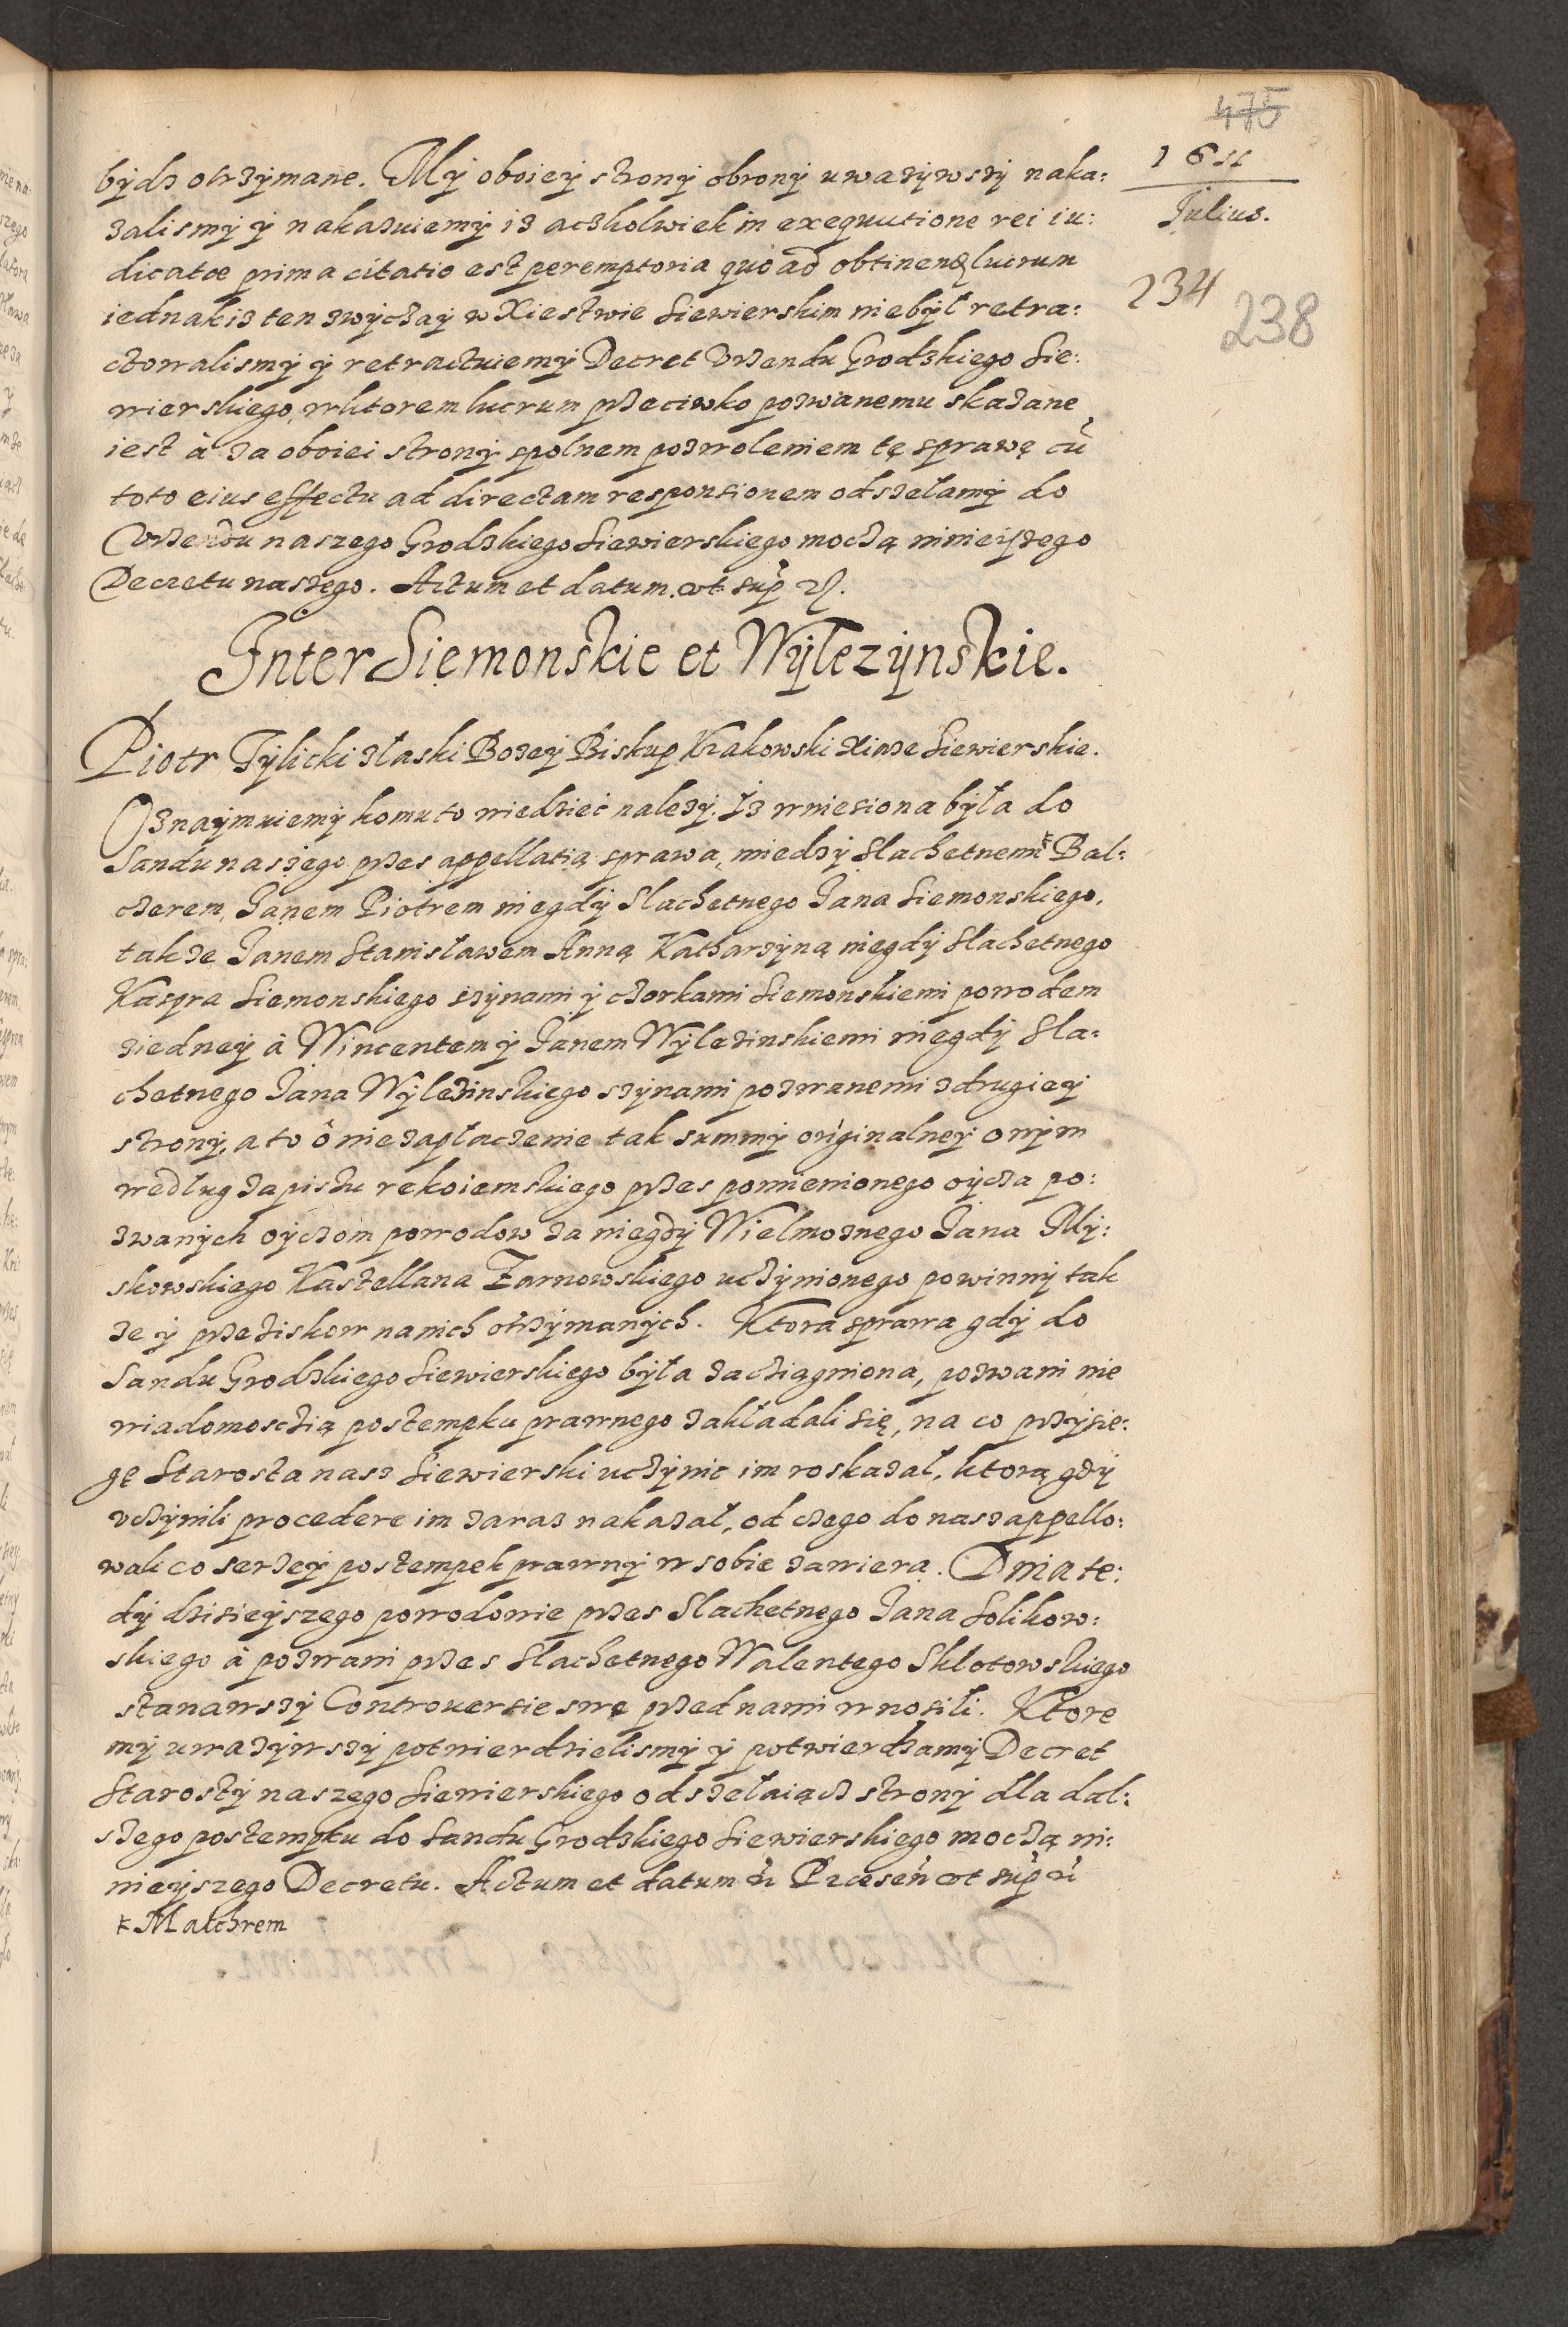 475
1611
Julius.
234
238
bydz otrzymane. My oboiey strony obrony uwazywszy naka:
zalismy y nakazuiemy iz aczkolwiek in exequutione rei iu:
dicatæ prima citatio est peremptoria quo ad obtinend lucrum
iednak iz ten zwyczay w Xiestwie Siewierskim niebył retra:
ctowalismy y retractuiemy Decret Vrzendu Grodzkiego Sie:
wierskiego, wktorem lucrum przeciwko pozwanemu skazane
iest à za oboiei strony spolnem pozwoleniem tę sprawę cũ
toto eius effectu ad directam responsionem odszełamy do
Vrzendu naszego Grodzkiego Siewierskiego moczą ninieiszego
Decretu naszego. Actum et datum. vt sup
Inter Siemonskie et Wylezynskie.
Piotr Tylicki złaski Bozey Biskup Krakowski Xiaze Siewierskie.
Oznaymuiemy komu to wiedziec nalezy. Iz wniesiona była do
Sandu naszego przes appellatią sprawa, miedzy Slachetnemi Bal:
czerem, Janem Piotrem niegdy Slachetnego Jana Siemonskiego,
takze Janem Stanisławem Anną Katharzyną niegdy Slachetnego
Kaspra Siemonskiego szynami y czorkami Siemonskiemi powodem
ziedney à Wincentem y Janem Wylezinskiemi niegdy Sla:
chetnego Jana Wylezinskiego szynami pozwanemi zdrugiey
strony, a to ô nie zapłaczenie tak summy originalney onym
według zapiszu rekoiemskiego przes pomienionego oycza po:
zwanych oyczom powodow za niegdy Wielmoznego Jana My:
skowskiego Kasztellana Zarnowskiego uczynionego powinny tak
ze y przeziskow nanich otrzymanych. Ktora sprawa gdy do
Sandu Grodzkiego Siewierskiego była zacziągniona, pozwani nie
wiadomosczią postempku prawnego zakładali się, na co przysię:
gę Starosta nasz Siewierski uczynic im roskazał, ktorą gdy
vczynili procedere im zaraz nakazał, od czego do nas zappello:
wali co serzey postempek prawny w sobie zawiera. Dnia te:
dy dzisieyszego powodowie przes Slachetnego Jana Solikow:
skiego à pozwani przes Slachetnego Walentego Sklotowskiego
stanawszy Controuersie swe przed nami wnosili. Ktore
my uwazywszy potwierdzielismy y potwierdzamy Decret
Starosty naszego Siewierskiego odszełaiącz strony dla dal:
szego postempku do Sandu Grodzkiego Siewierskiego moczą ni:
nieyszego Decretu. Actum et datum Præsen vt sup
Malchrem